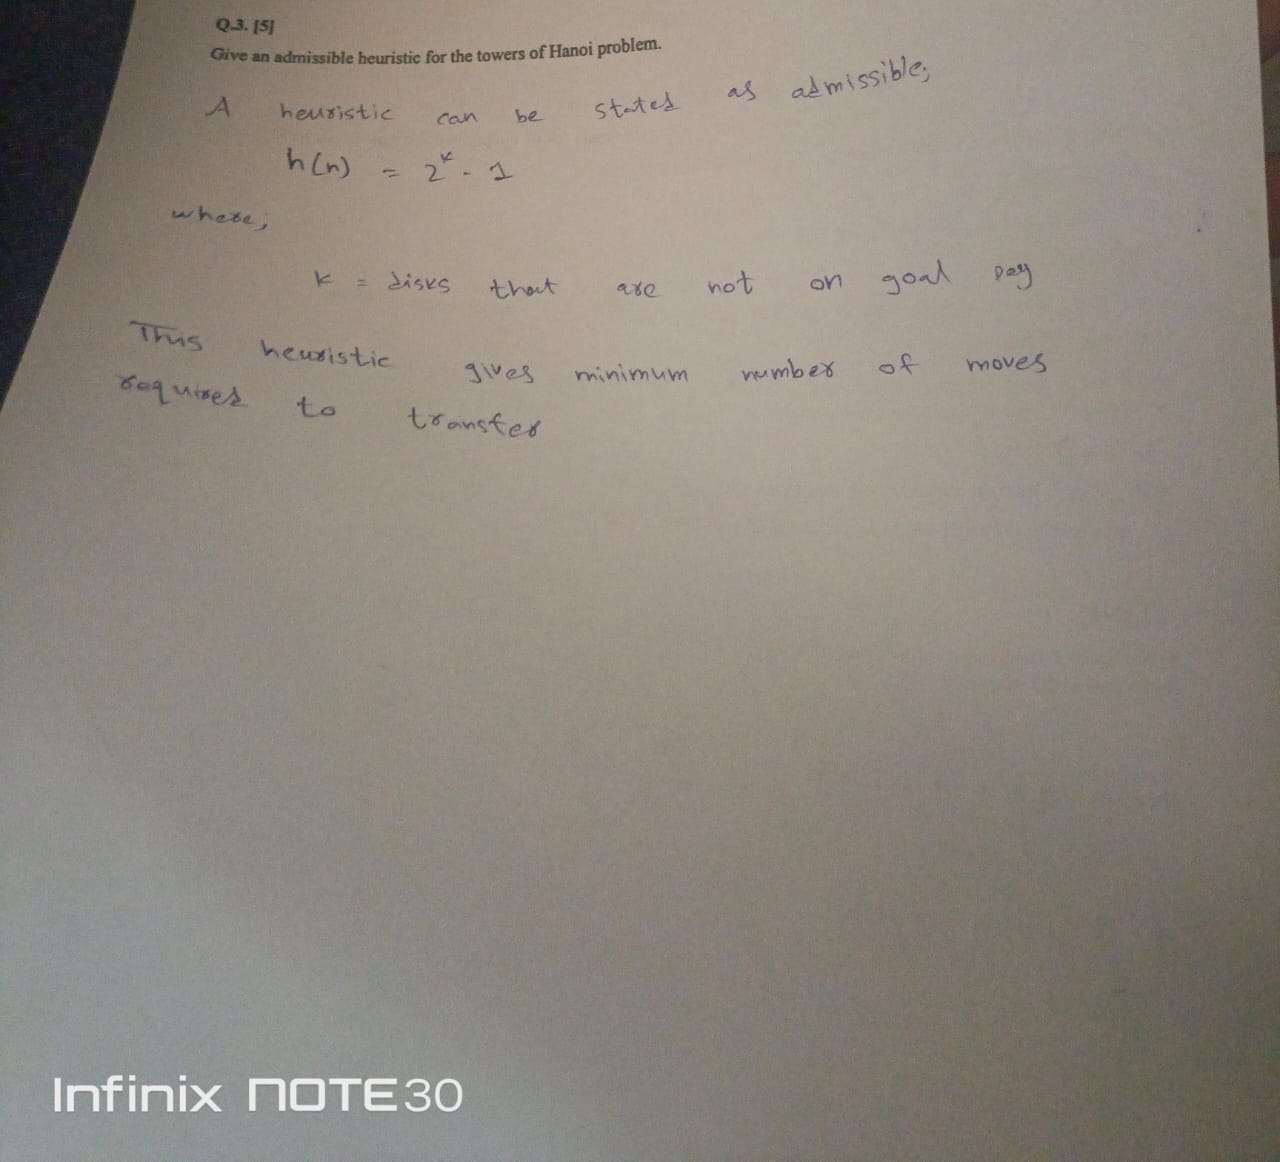 Q.3. [5]
Give an admissible heuristic for the towers of Hanoi problem.
A heuristic can be stated as admissible;
h(n) = 2^k - 1
where;
k = disks that are not on goal peg
This heuristic gives minimum number of moves
required to transfer
Infinix NOTE 30